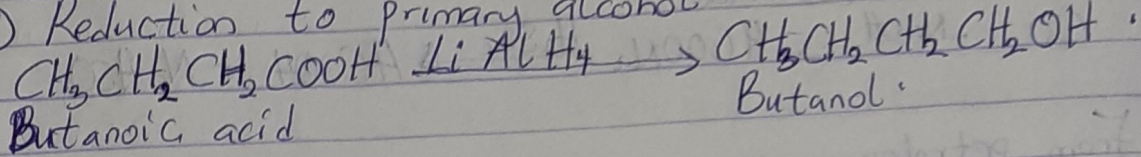 ) Reduction to primary alcohol
CH₃CH₂CH₂COOH LiAlH₄ → CH₃CH₂CH₂CH₂OH.
Butanoic acid Butanol.